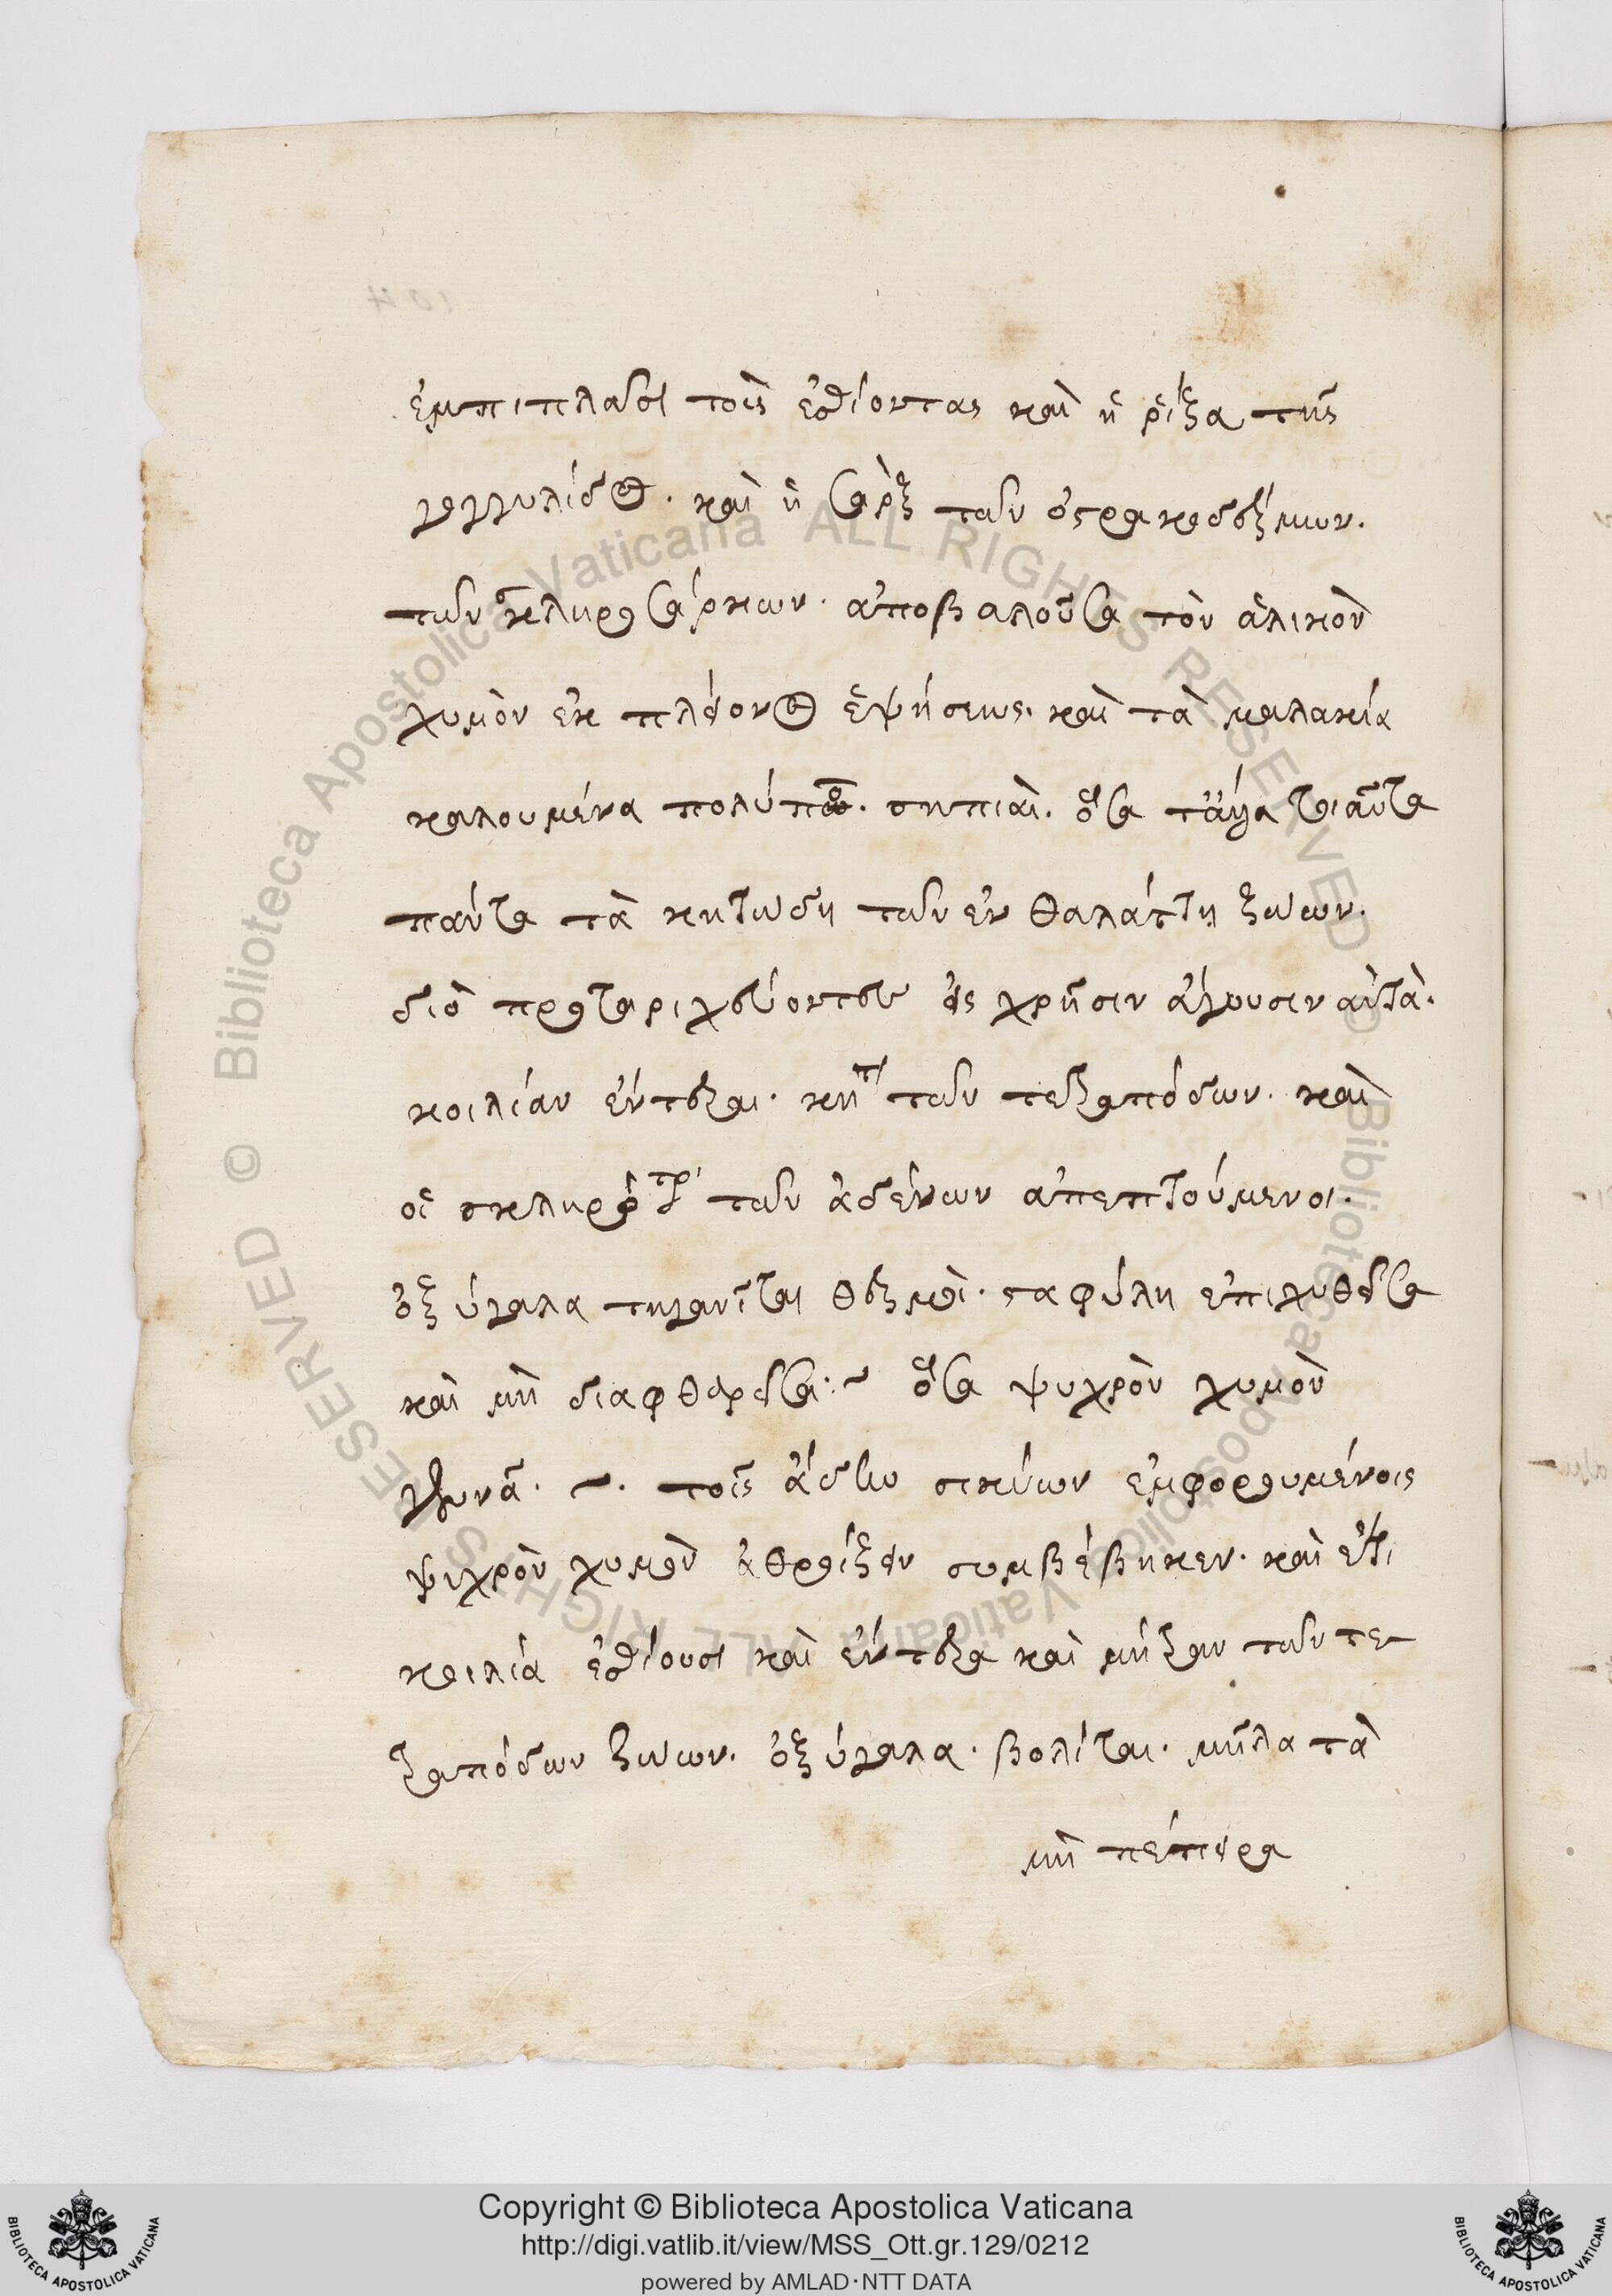 ἐμπιπλῶσι τοῖς ἐσθίοντας καὶ ἡ ρίζα τῆς
γογγυλίδος. καὶ ἡ σὰρξ τῶν ὀστρακοδέρμων.
τῶν σκληροσάρκων. ἀποβαλοῦσα τὸν ἁλικὸν
χυμὸν ἐκ πλείονος ἑψήσεως. καὶ τὰ μαλακία
καλουμένα πολύποδος. σηπίαι. ὅσα τἄλλα τοιαῦτα
πάντα τὰ κητώδη τῶν ἐν θαλάττῃ ζώων.
διὸ προταριχεύοντες εἰς χρῆσιν ἄγουσιν αὐτὰ.
κοιλίαν ἔντερα. τῶν τετραπόδων. καὶ
οἱ σκληρότεροι τῶν ἀδένων ἀπεπτούμενοι.
ὀξύγαλα τηγανῖται θερμοὶ. σταφύλη ἐπιχυθεῖσα
καὶ μὴ διαφθαρεῖσα:~ ὅσα ψυχρὸν χυμὸν
γεννᾶ. ~. τοῖς ἄδην σικύων ἐμφορουμένοις
ψυχρὸν χυμὸν ἀθροίζειν συμβέβηκεν. καὶ ἔτι
κοιλία ἐσθίουσι καὶ ἔντερα καὶ μήτραν τῶν τε
τραπόδων ζώων. ὀξύγαλα. βολίται. μῆλα τὰ
μὴ πέπειρα
Copyright © Biblioteca Apostolica Vaticana
http://digi.vatlib.it/view/MSS_Ott.gr.129/0212
powered by AMLAD·NTT DATA
BIBLIOTECA APOSTOLICA VATICANA
BIBLIOTECA APOSTOLICA VATICANA
© Biblioteca Apostolica Vaticana ALL RIGHTS RESERVED © Biblioteca Apostolica Vaticana ALL RIGHTS RESERVED